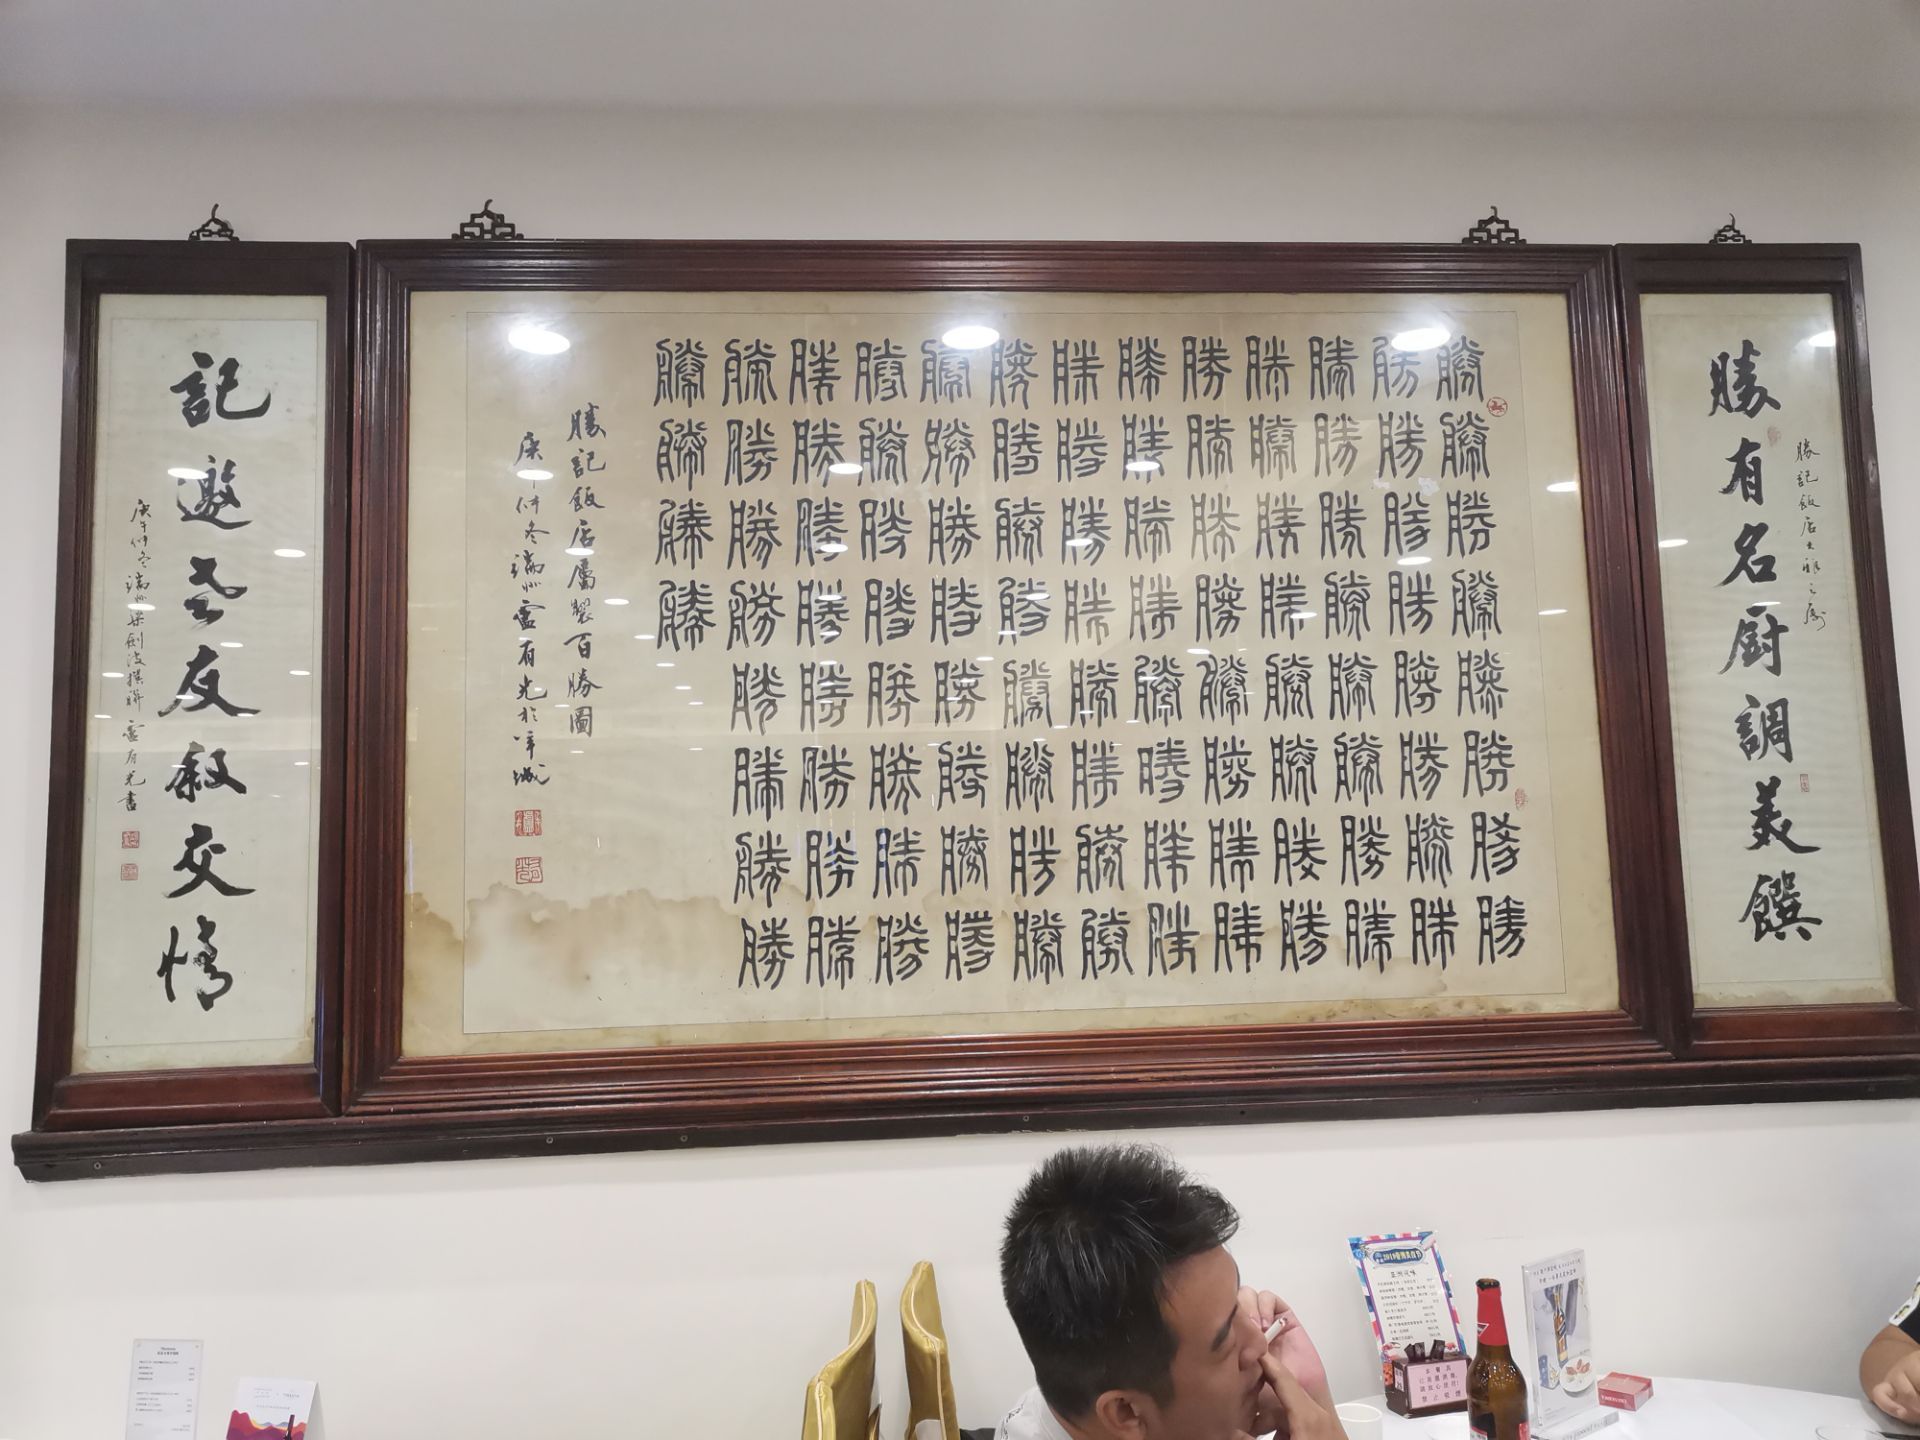 勝有名厨調美饌
勝記飯店大雅之屬
勝勝勝勝勝勝勝勝
勝勝勝勝勝勝勝勝
勝勝勝勝勝勝勝勝
勝勝勝勝勝勝勝勝
勝勝勝勝勝勝勝勝
勝勝勝勝勝勝勝勝
勝勝勝勝勝勝勝勝
勝勝勝勝勝勝勝勝
勝勝勝勝勝勝勝勝
勝勝勝勝勝勝勝勝
勝勝勝勝勝勝勝勝
勝勝勝勝勝勝勝勝
勝勝勝勝
勝記飯店屬製百勝圖
庚午仲冬端州盧有光於羊城
記邀老友叙交情
庚午仲冬端州梁劍波撰聯 盧有光書
2019亚洲美食节
亚洲风味
本餐具
已高温消毒,
请放心使用!
禁止吸烟